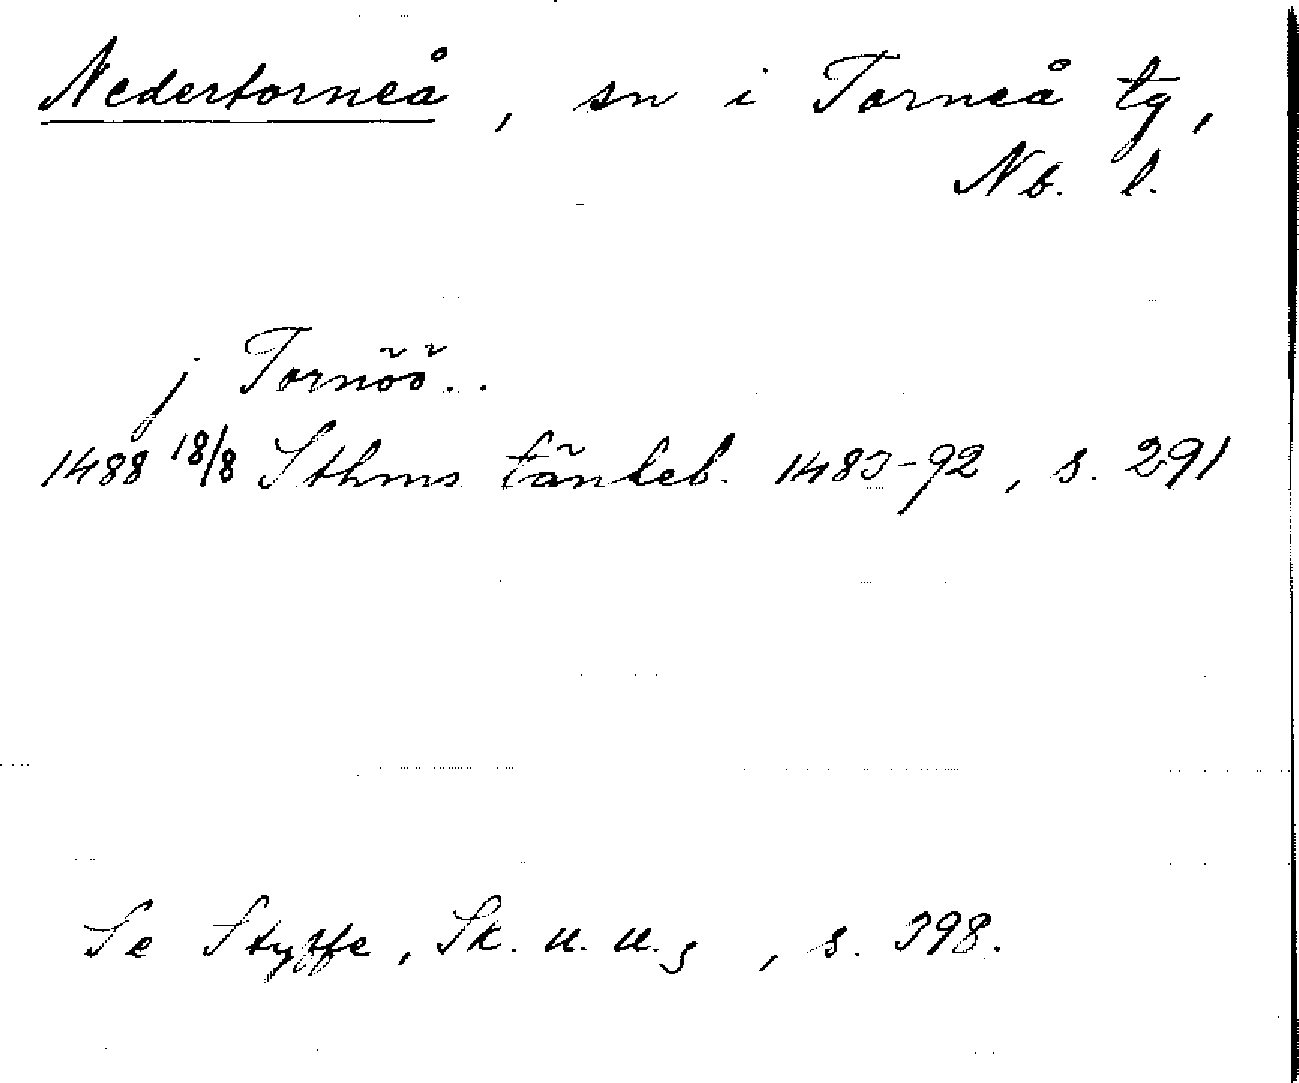 Nedertorneå, sn i Torneå tg,
Nb. l.
j Tornöö..
1488 18/8 Sthms tänkeb. 1483-92, s. 291
Se Styffe, Sk. u. u.3, s. 398.